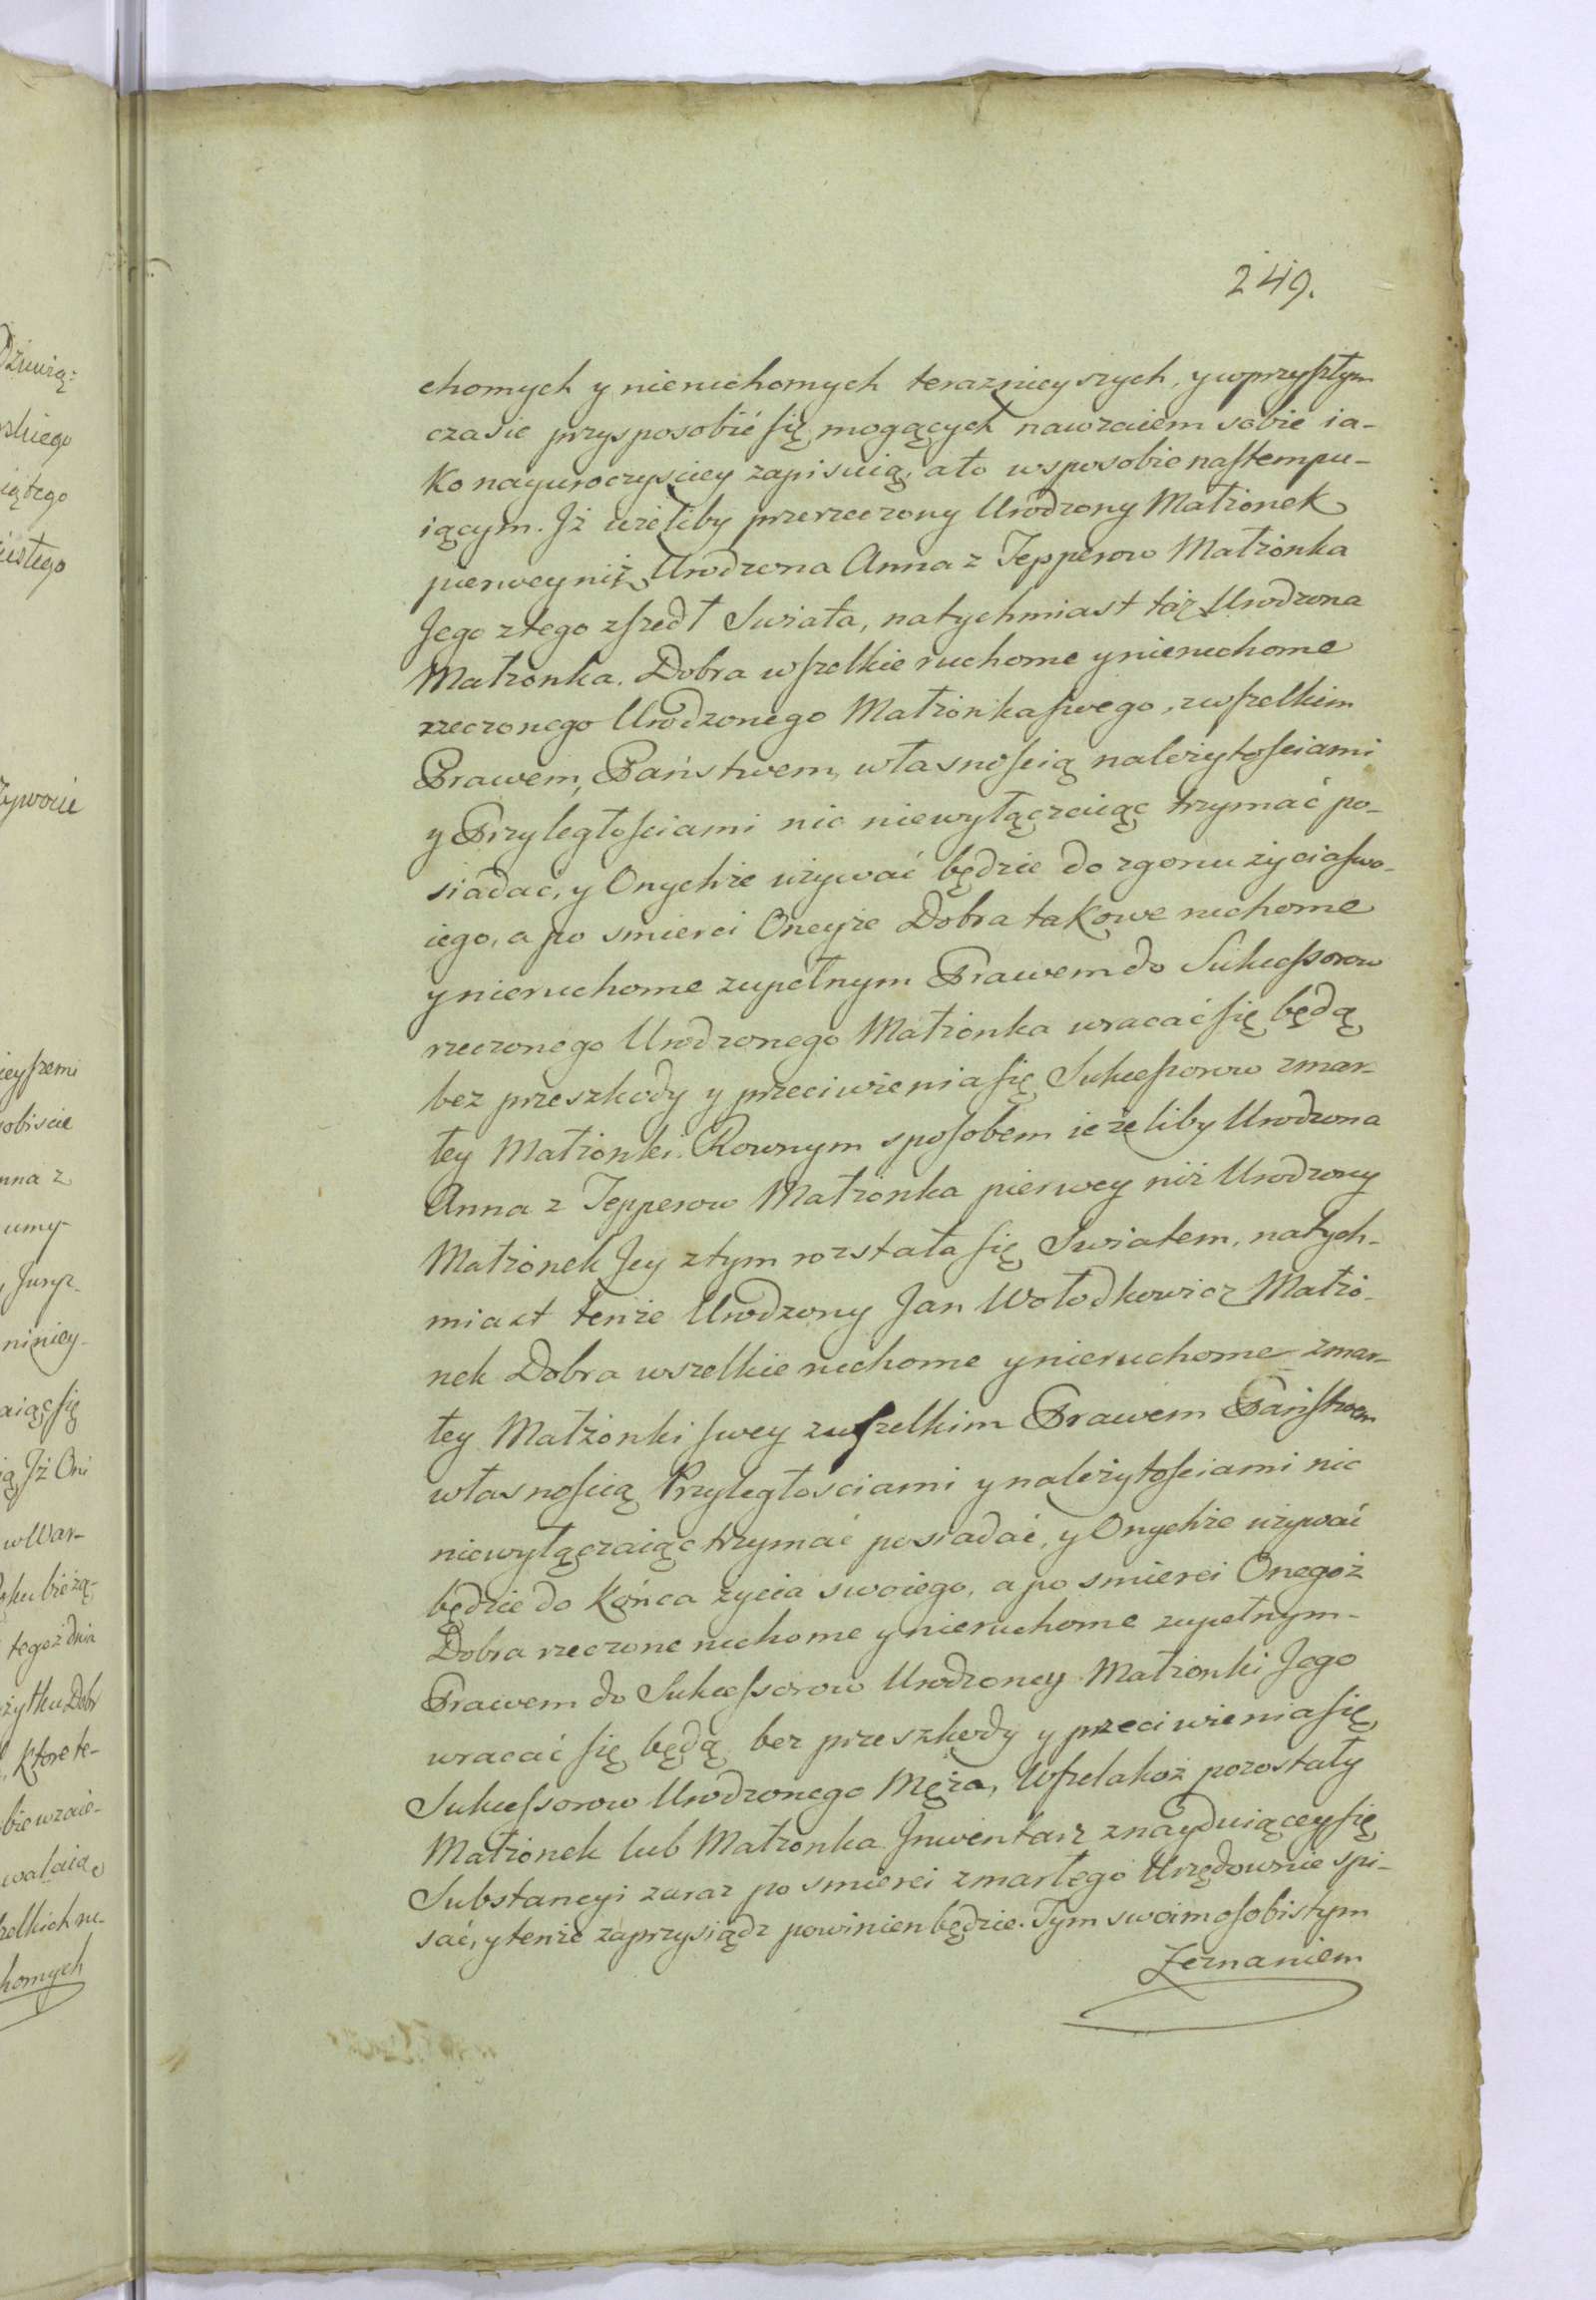 249.
chomych y nieruchomych teraznieyszych, y w przyszłym
czasie przysposobić się mogących nawzaiem sobie ia-
ko nayuroczysciey zapisuią, a to w sposobie nastempu-
iącym. Jż ieżeliby przerzeczony Urodzony Małżonek
pierwey niż Urodzona Anna z Tepperow Małżonka
Jego z tego zszedł Swiata, natychmiast taż Urodzona
Małżonka. Dobra wszelkie ruchome y nieruchome
rzeczonego Urodzonego Małżonka swego, z wszelkim
Prawem, Państwem, własnością należytościami
y Przyległościami nic niewyłączaiąc trzymać po-
siadać, y Onychże używać będzie do zgonu życia swo-
iego, a po smierci Oneyże Dobra takowe ruchome
y nieruchome zupełnym Prawem do Sukcessorow
rzeczonego Urodzonego Małżonka wracać się będą
bez przeszkody y przeciwienia się Sukcessorow zmar-
łey Małżonki. Rownym sposobem ieżeliby Urodzona
Anna z Tepperow Małżonka pierwey niż Urodzony
Małżonek Jey z tym rozstała się Swiatem, natych-
miast tenże Urodzony Jan Wołodkowicz Małżo-
nek Dobra wszelkie ruchome y nieruchome zmar-
łey Małżonki swey z wszelkim Prawem Państwem
własnością Przyległosciami y należytościami nic
niewyłączaiąc trzymać posiadać, y Onychże używać
będzie do końca życia swoiego, a po smierci Onegoż
Dobra rzeczone ruchome y nieruchome zupełnym
Prawem do Sukcessorow Urodzoney Małżonki Jego
wracać się będą bez przeszkody y przeciwienia się
Sukcessorow Urodzonego Męża, Wszelakoż pozostały
Małżonek lub Małżonka Jnwentarz znayduiącey się
Substancyi zaraz po smierci zmarłego Urzędownie spi-
sać, y tenże zaprzysiądz powinien będzie. Tym swoim osobistym
Zeznaniem